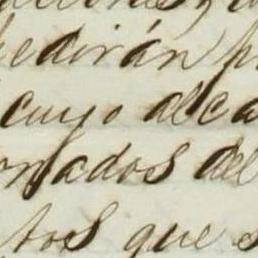 edirán p
cuyo alca
mados del
tos que s